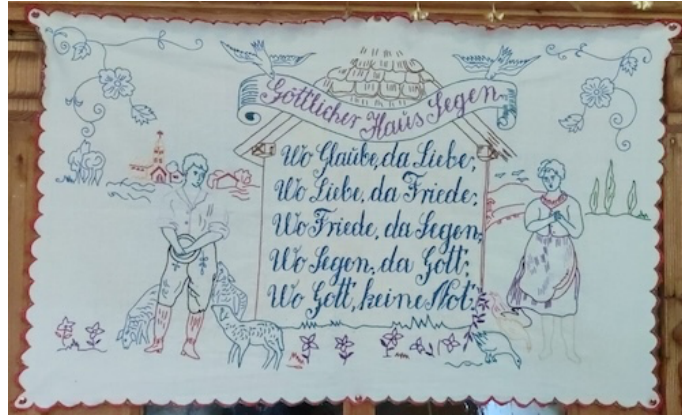 Göttlicher Haus Segen
Wo Glaube, da Liebe,
Wo Liebe, da Friede;
Wo Friede, da Segen,
Wo Segen, da Gott;
Wo Gott, keine Not.